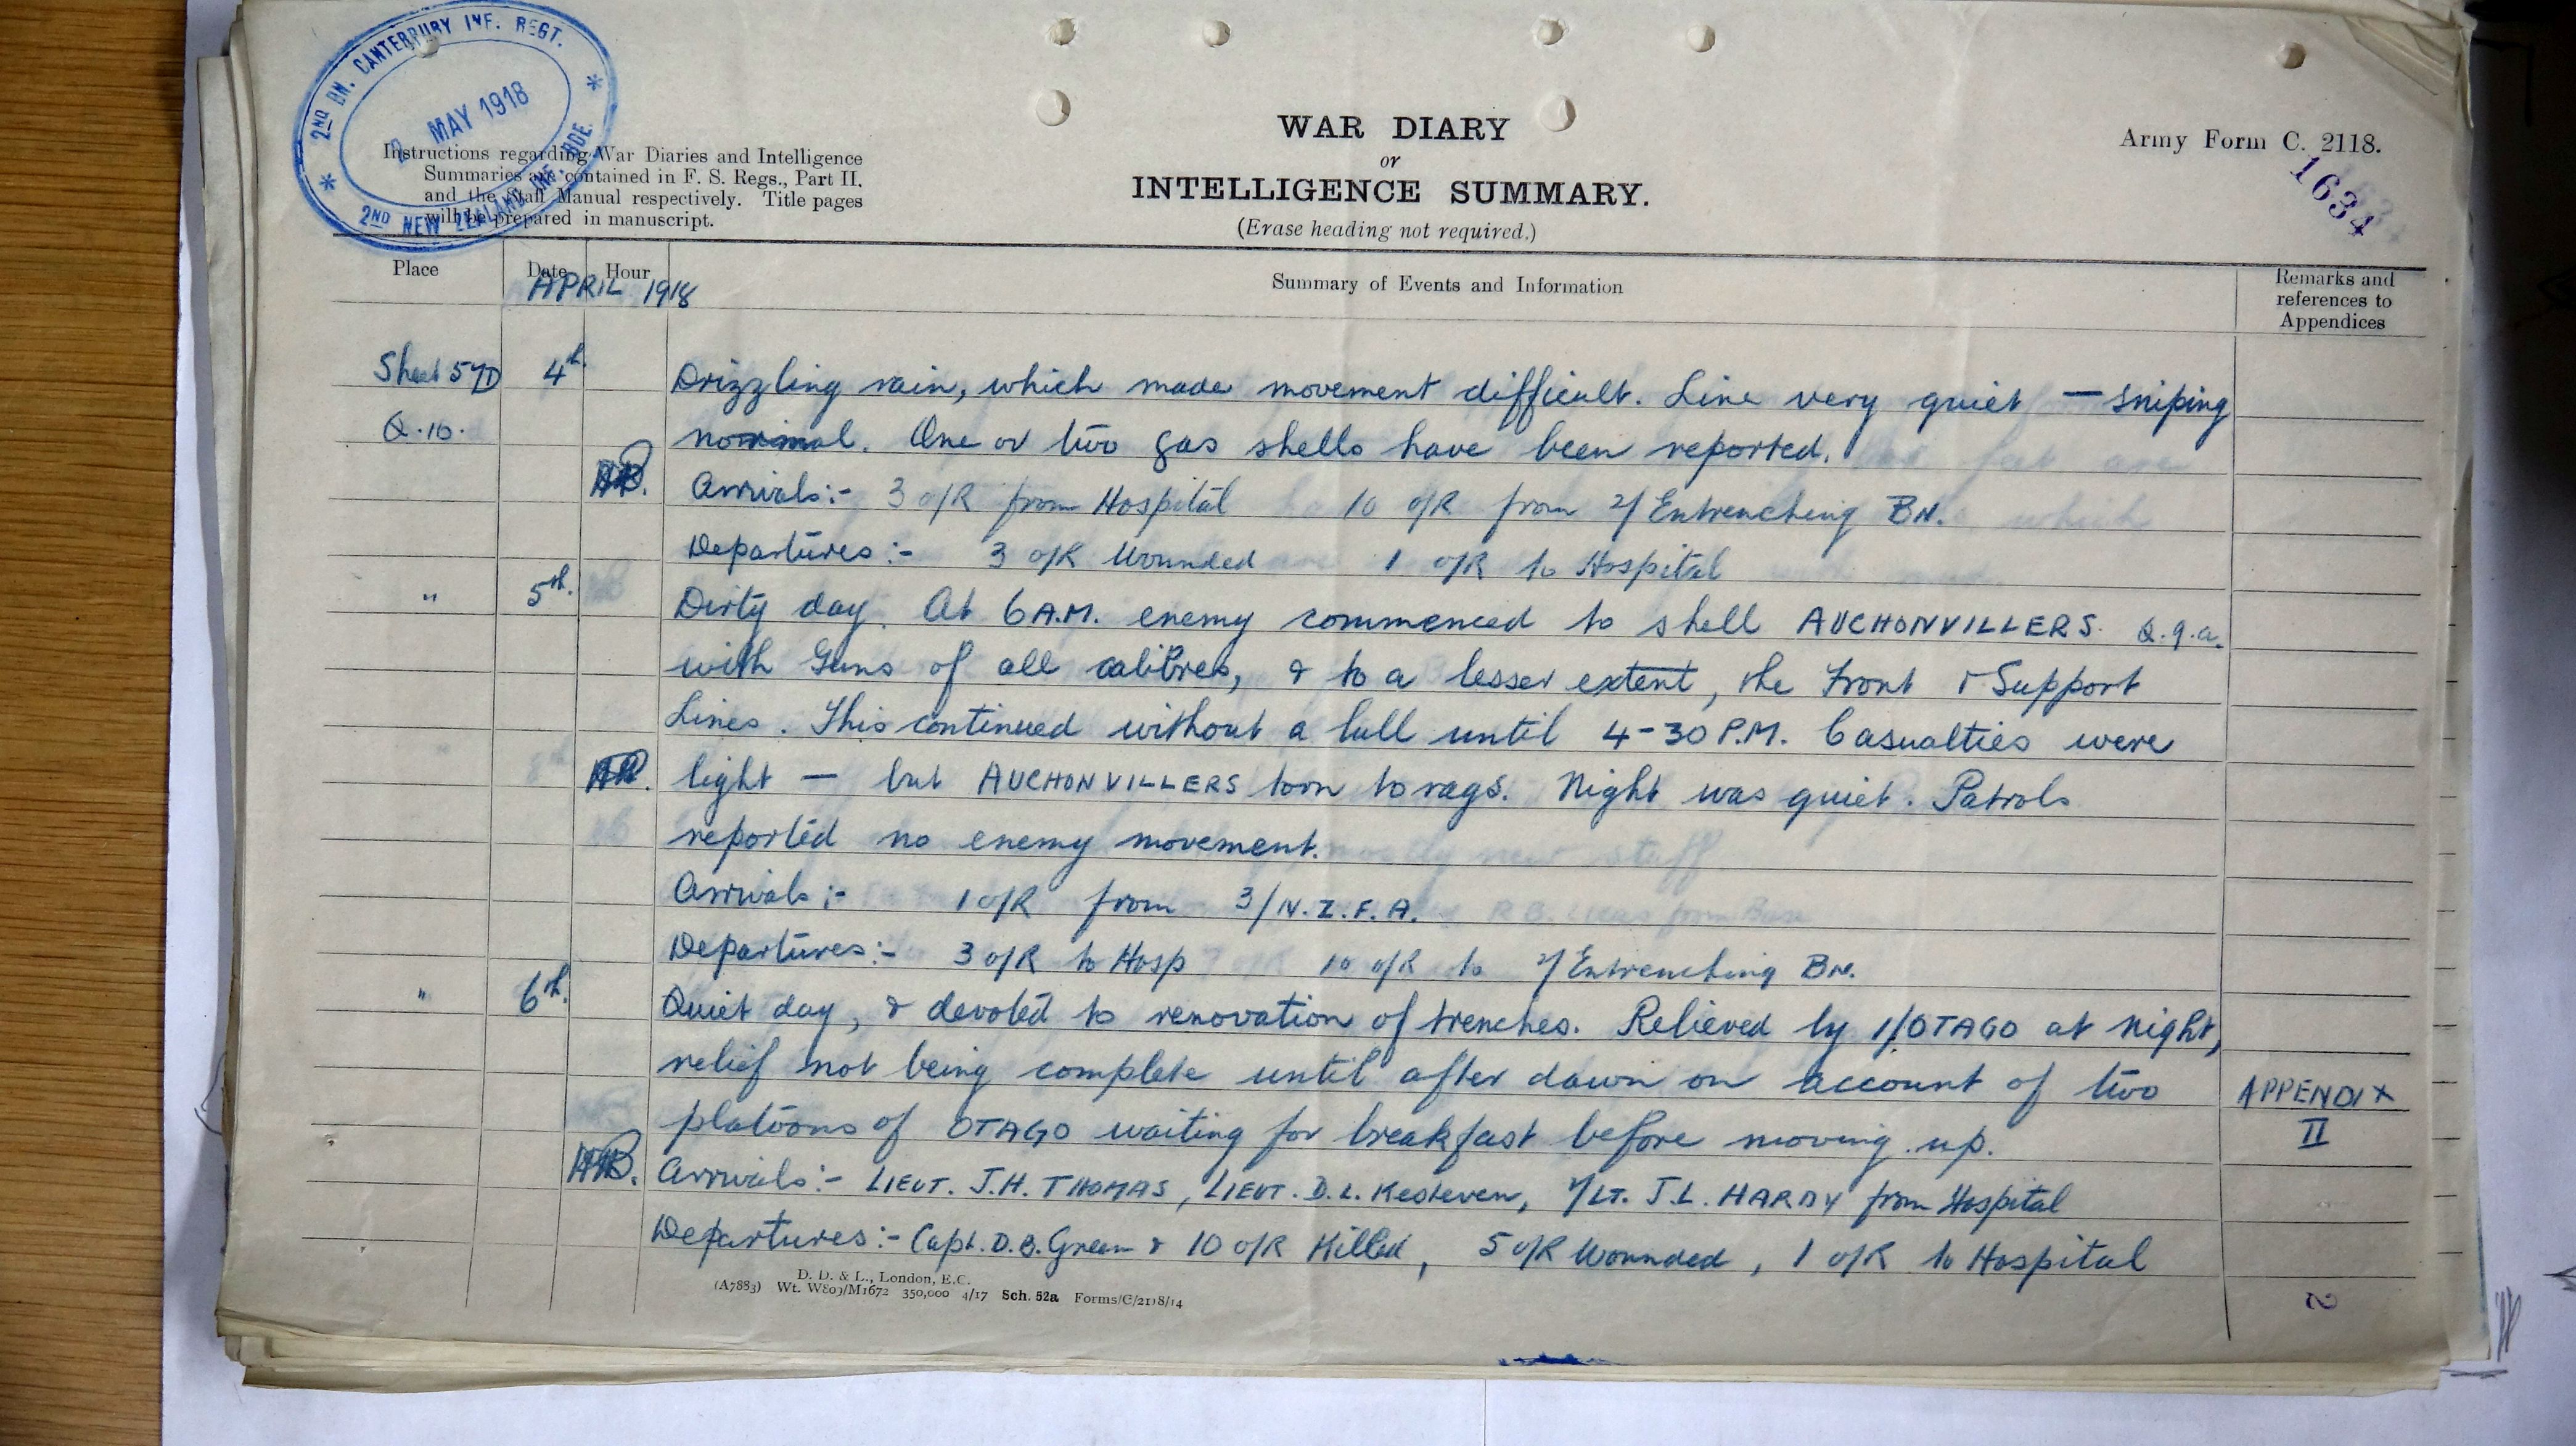 2ND BN. CANTERBURY INF. REGT.
MAY 1918
2ND NEW ZEALAND INF. BDE.
Instructions regarding War Diaries and Intelligence
Summaries are contained in F. S. Regs., Part II.
and the Staff Manual respectively. Title pages
will be prepared in manuscript.
WAR DIARY
or
INTELLIGENCE SUMMARY.
(Erase heading not required.)
Army Form C. 2118.
1634
Place Date Hour Summary of Events and Information Remarks and
references to
Appendices
APRIL 1918
Sheet 57D 4th Drizzling rain, which made movement difficult. Line very quiet — sniping
Q.10. normal. One or two gas shells have been reported.
Arrivals:- 3 o/R from Hospital 10 o/R from 2/Entrenching BN.
Departures:- 3 o/R Wounded 1 o/R to Hospital
" 5th. Dirty day. At 6 A.M. enemy commenced to shell AUCHONVILLERS. Q.9.a.
with Guns of all calibres, & to a lesser extent, the Front & Support
Lines. This continued without a lull until 4-30 P.M. Casualties were
light — but AUCHONVILLERS torn to rags. Night was quiet. Patrols
reported no enemy movement.
Arrivals:- 1 o/R from 3/N.Z.F.A.
Departures:- 3 o/R to Hosp 10 o/R to 2/Entrenching BN.
" 6th. Quiet day, & devoted to renovation of trenches. Relieved by 1/OTAGO at night,
relief not being complete until after dawn on account of two
platoons of OTAGO waiting for breakfast before moving up.
APPENDIX
II
Arrivals:- LIEUT. J.H. THOMAS, LIEUT. D.L. Kesteven, 2/LT. J.L. HARDY from Hospital
Departures:- Capt. D.B. Green & 10 o/R Killed, 5 o/R Wounded, 1 o/R to Hospital
D. D. & L., London, E.C.
(A7883) Wt. W809/M1672 350,000 4/17 Sch. 52a Forms/C/2118/14
2